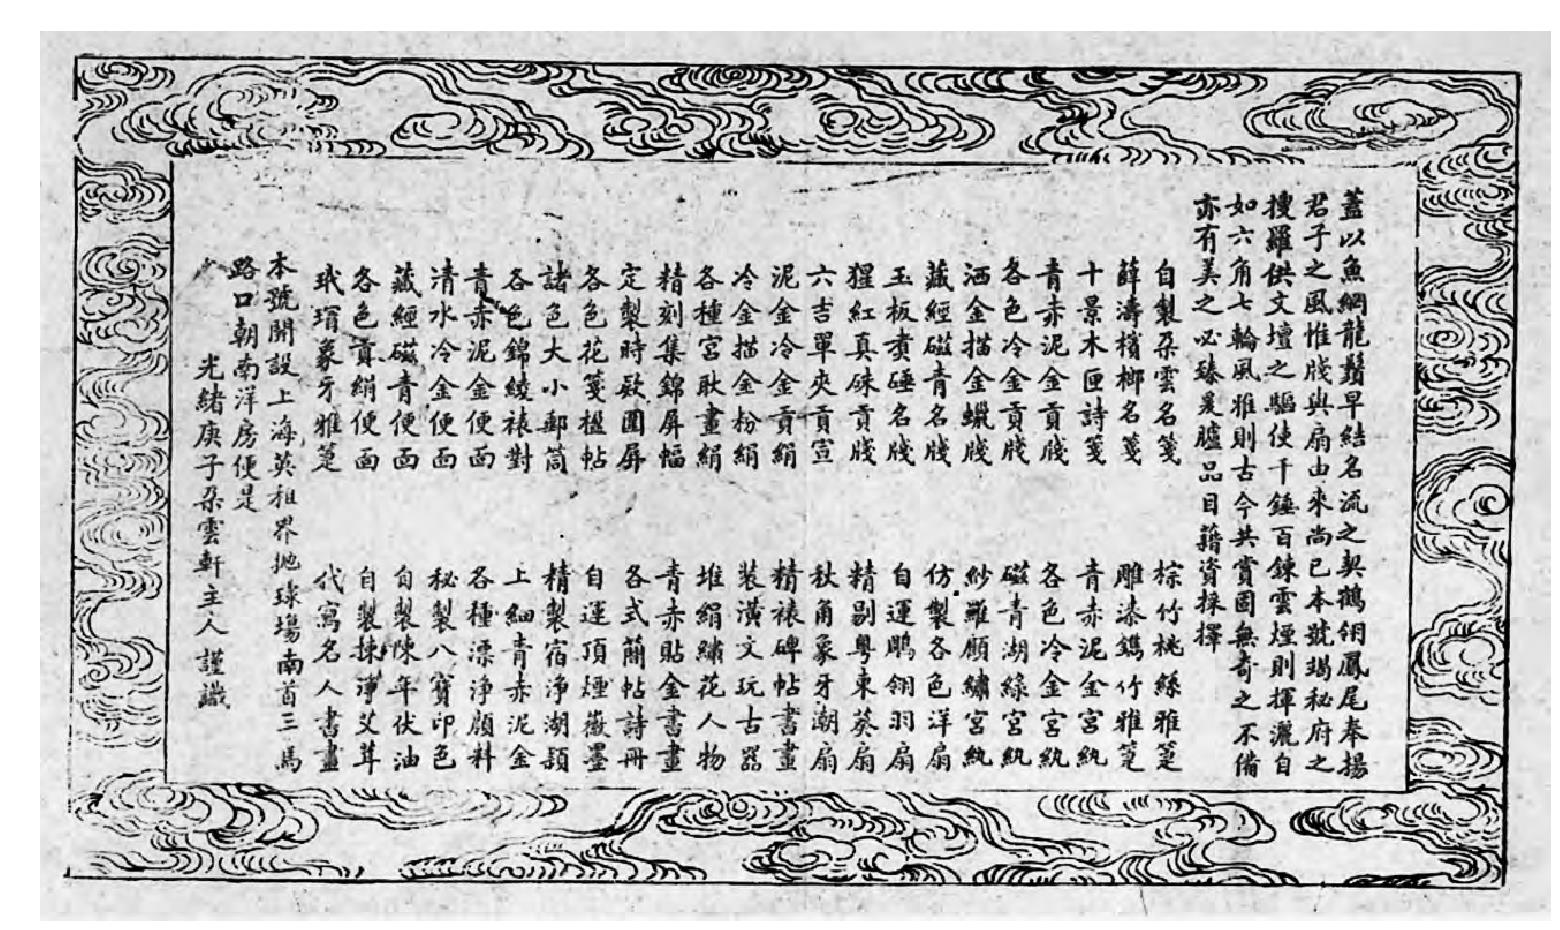 蓋以魚網龍鬚早結名流之契鶴翎鳳尾奉揚
君子之風惟牋與扇由來尚已本號竭秘府之
搜羅供文壇之驅使千錘百鍊雲煙則揮灑自
如六角七輪風雅則古今共賞固無奇之不備
亦有美之必臻爰臚品目藉資採擇
自製朵雲名箋 棕竹桃絲雅箑
薛濤檳榔名箋 雕漆鐫竹雅箑
十景木匣詩箋 青赤泥金宮紈
青赤泥金貢牋 各色冷金宮紈
各色冷金貢牋 磁青湖綠宮紈
洒金描金蠟牋 紗羅顧繡宮紈
藏經磁青名牋 仿製各色洋扇
玉板煮硾名牋 自運鵰翎羽扇
猩紅真硃貢牋 精剔粵東葵扇
六吉單夾貢宣 秋角象牙潮扇
泥金冷金貢絹 精裱碑帖書畫
冷金描金粉絹 裝潢文玩古器
各種宮耿畫絹 堆絹繡花人物
精刻集錦屏幅 青赤貼金書畫
定製時款圍屏 各式簡帖詩冊
各色花箋楹帖 自運頂煙徽墨
諸色大小郵筒 精製宿淨湖穎
各色錦綾裱對 上細青赤泥金
青赤泥金便面 各種漂淨顏料
清水冷金便面 秘製八寶印色
藏經磁青便面 自製陳年伏油
各色貢絹便面 自製揀淨艾茸
玳瑁象牙雅箑 代寫名人書畫
本號開設上海英租界拋球場南首三馬
路口朝南洋房便是
光緒庚子朵雲軒主人謹識